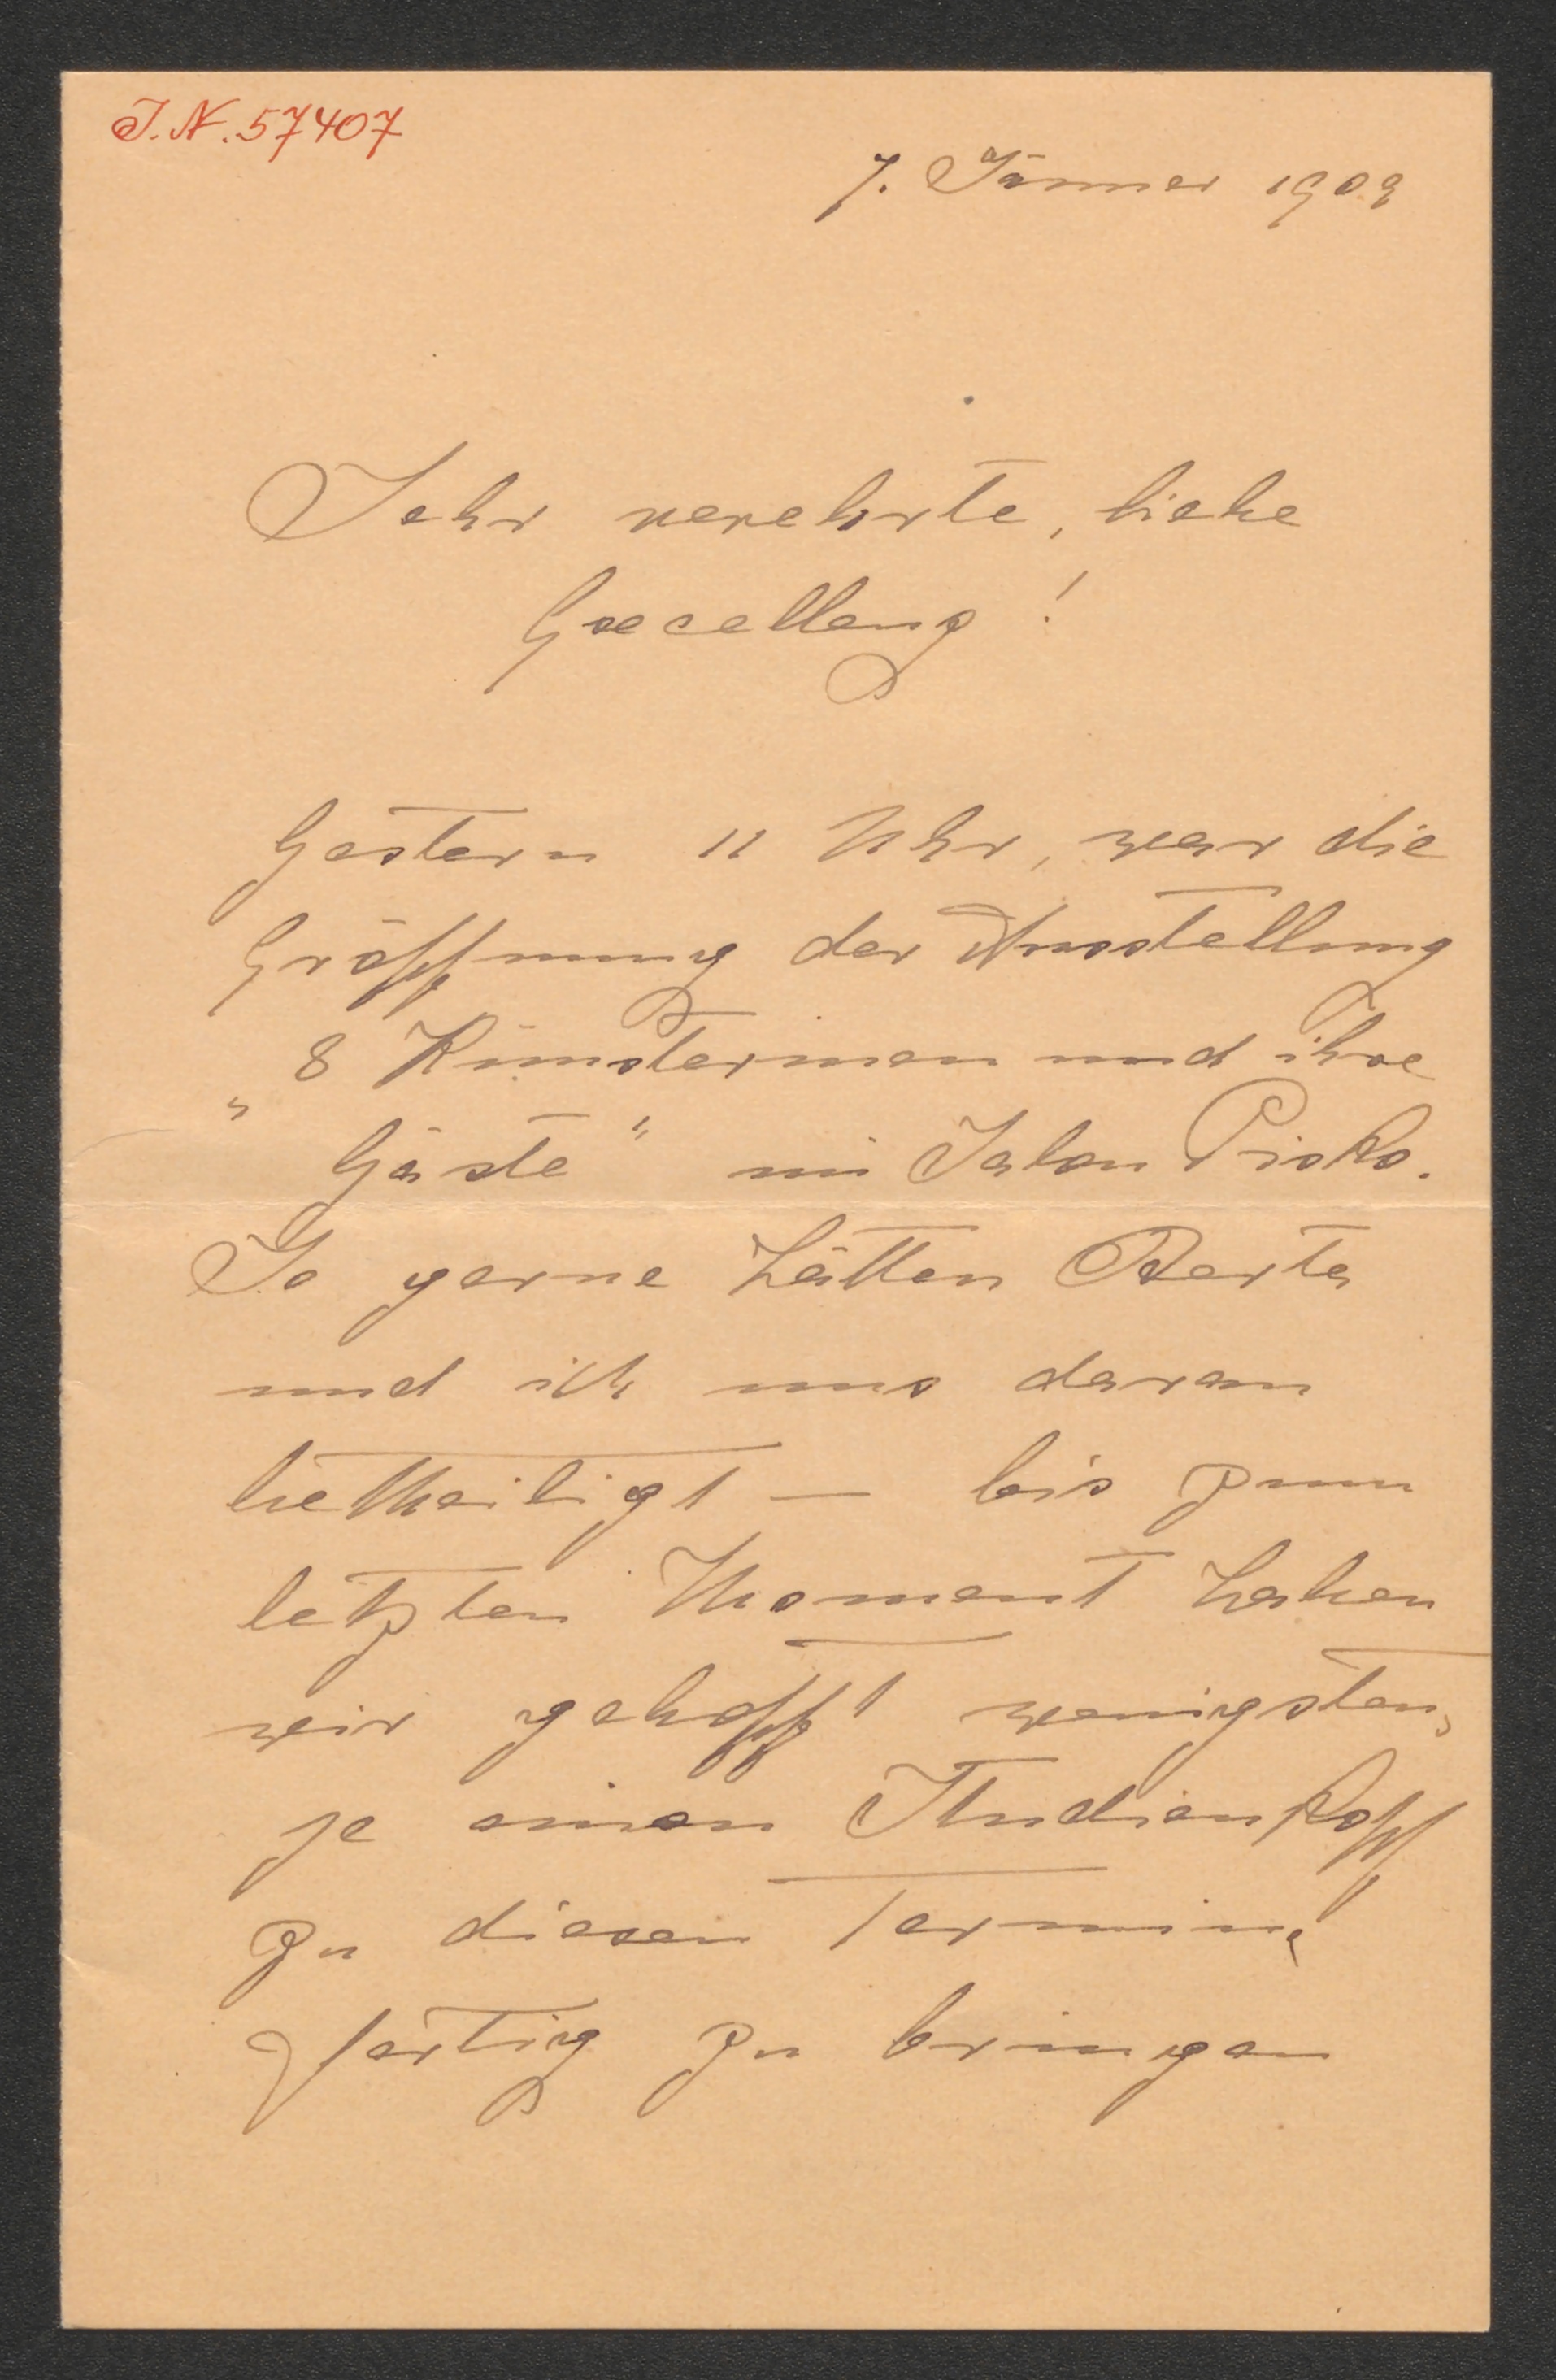 J.N. 57407
7. Jänner 1909
Sehr verehrte, liebe
Excellenz!
Gestern 11 Uhr, war die
Eröffnung der Ausstellung
„8 Künstlerinnen und ihre
Gäste“ im Salon Pisko.
So gerne hätten Berta
und ich uns daran
betheiligt — bis zum
letzten Moment haben
wir gehofft wenigstens
je einen Studienkopf
zu diesen Termine
fertig zu bringen